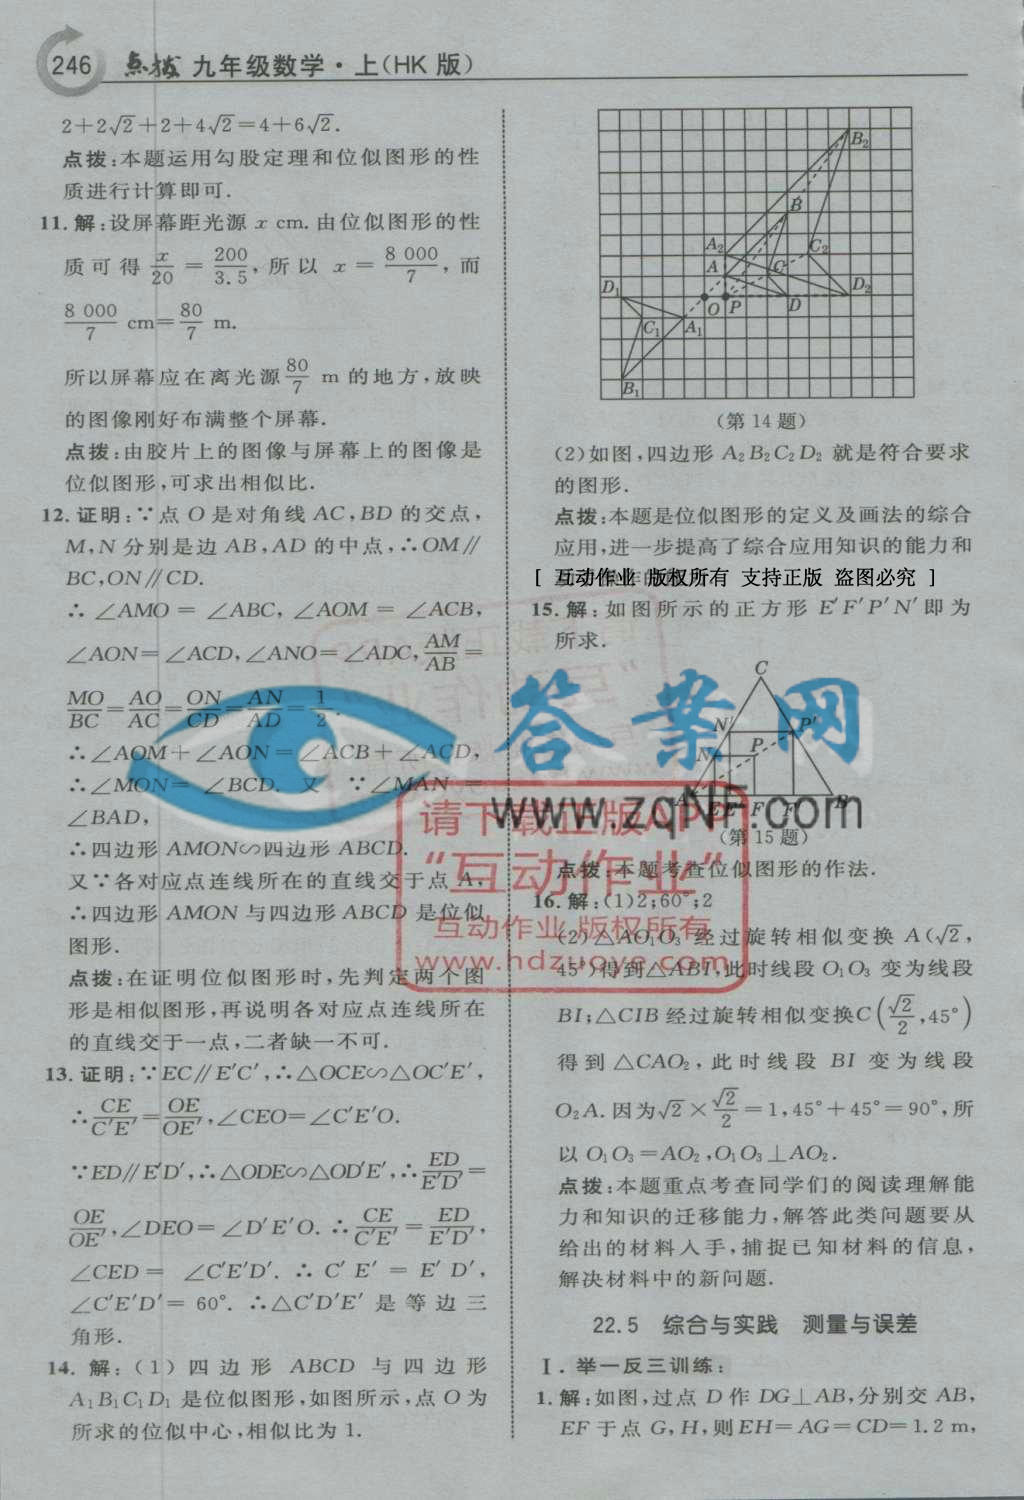 246 点拨 九年级数学·上(HK 版)
2+2√2+2+4√2=4+6√2.
点拨:本题运用勾股定理和位似图形的性
质进行计算即可.
11.解:设屏幕距光源 x cm.由位似图形的性
质可得 x/20 = 200/3.5,所以 x = 8 000/7,而
8 000/7 cm=80/7 m.
所以屏幕应在离光源80/7 m 的地方,放映
的图像刚好布满整个屏幕.
点拨:由胶片上的图像与屏幕上的图像是
位似图形,可求出相似比.
12.证明:∵点 O 是对角线 AC,BD 的交点,
M,N 分别是边 AB,AD 的中点,∴OM∥
BC,ON∥CD.
∴∠AMO=∠ABC,∠AOM=∠ACB,
∠AON=∠ACD,∠ANO=∠ADC,AM/AB=
MO/BC=AO/AC=ON/CD=AN/AD=1/2.
∴∠AOM+∠AON=∠ACB+∠ACD,
∴∠MON=∠BCD.又∵∠MAN=
∠BAD,
∴四边形 AMON∽四边形 ABCD.
又∵各对应点连线所在的直线交于点 A,
∴四边形 AMON 与四边形 ABCD 是位似
图形.
点拨:在证明位似图形时,先判定两个图
形是相似图形,再说明各对应点连线所在
的直线交于一点,二者缺一不可.
13.证明:∵EC∥E′C′,∴△OCE∽△OC′E′,
∴CE/C′E′=OE/OE′,∠CEO=∠C′E′O.
∵ED∥E′D′,∴△ODE∽△OD′E′,∴ED/E′D′=
OE/OE′,∠DEO=∠D′E′O.∴CE/C′E′=ED/E′D′,
∠CED=∠C′E′D′.∴C′E′=E′D′,
∠C′E′D′=60°.∴△C′D′E′是等边三
角形.
14.解:(1)四边形 ABCD 与四边形
A₁B₁C₁D₁ 是位似图形,如图所示,点 O 为
所求的位似中心,相似比为 1.
B₂
B
A₂
C₂
A
C
D₁
D₂
O P
D
C₁
A₁
B₁
(第 14 题)
(2)如图,四边形 A₂B₂C₂D₂ 就是符合要求
的图形.
点拨:本题是位似图形的定义及画法的综合
应用,进一步提高了综合应用知识的能力和
[ 互动作业 版权所有 支持正版 盗图必究 ]
15.解:如图所示的正方形 E′F′P′N′即为
所求.
C
N′
P′
N
P
A
E
F
B
(第 15 题)
点拨:本题考查位似图形的作法.
16.解:(1)2;60°;2
(2)△AO₁O₃ 经过旋转相似变换 A(√2,
45°)得到△ABI,此时线段 O₁O₃ 变为线段
BI;△CIB 经过旋转相似变换C(√2/2,45°)
得到△CAO₂,此时线段 BI 变为线段
O₂A.因为√2×√2/2=1,45°+45°=90°,所
以 O₁O₃=AO₂,O₁O₃⊥AO₂.
点拨:本题重点考查同学们的阅读理解能
力和知识的迁移能力,解答此类问题要从
给出的材料入手,捕捉已知材料的信息,
解决材料中的新问题.
22.5 综合与实践 测量与误差
Ⅰ.举一反三训练:
1.解:如图,过点 D 作 DG⊥AB,分别交 AB,
EF 于点 G,H,则EH=AG=CD=1.2 m,
答案网
www.zqNF.com
请下载正版APP
“互动作业”
互动作业 版权所有
www.hdzuoye.com